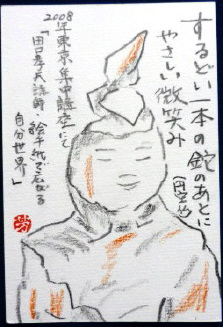 するどい一本の鉈のあとに
やさしい微笑み
(円空仏)
2008年東京集中講座にて
「田口孝夫講師・絵手紙で広がる
自分世界」